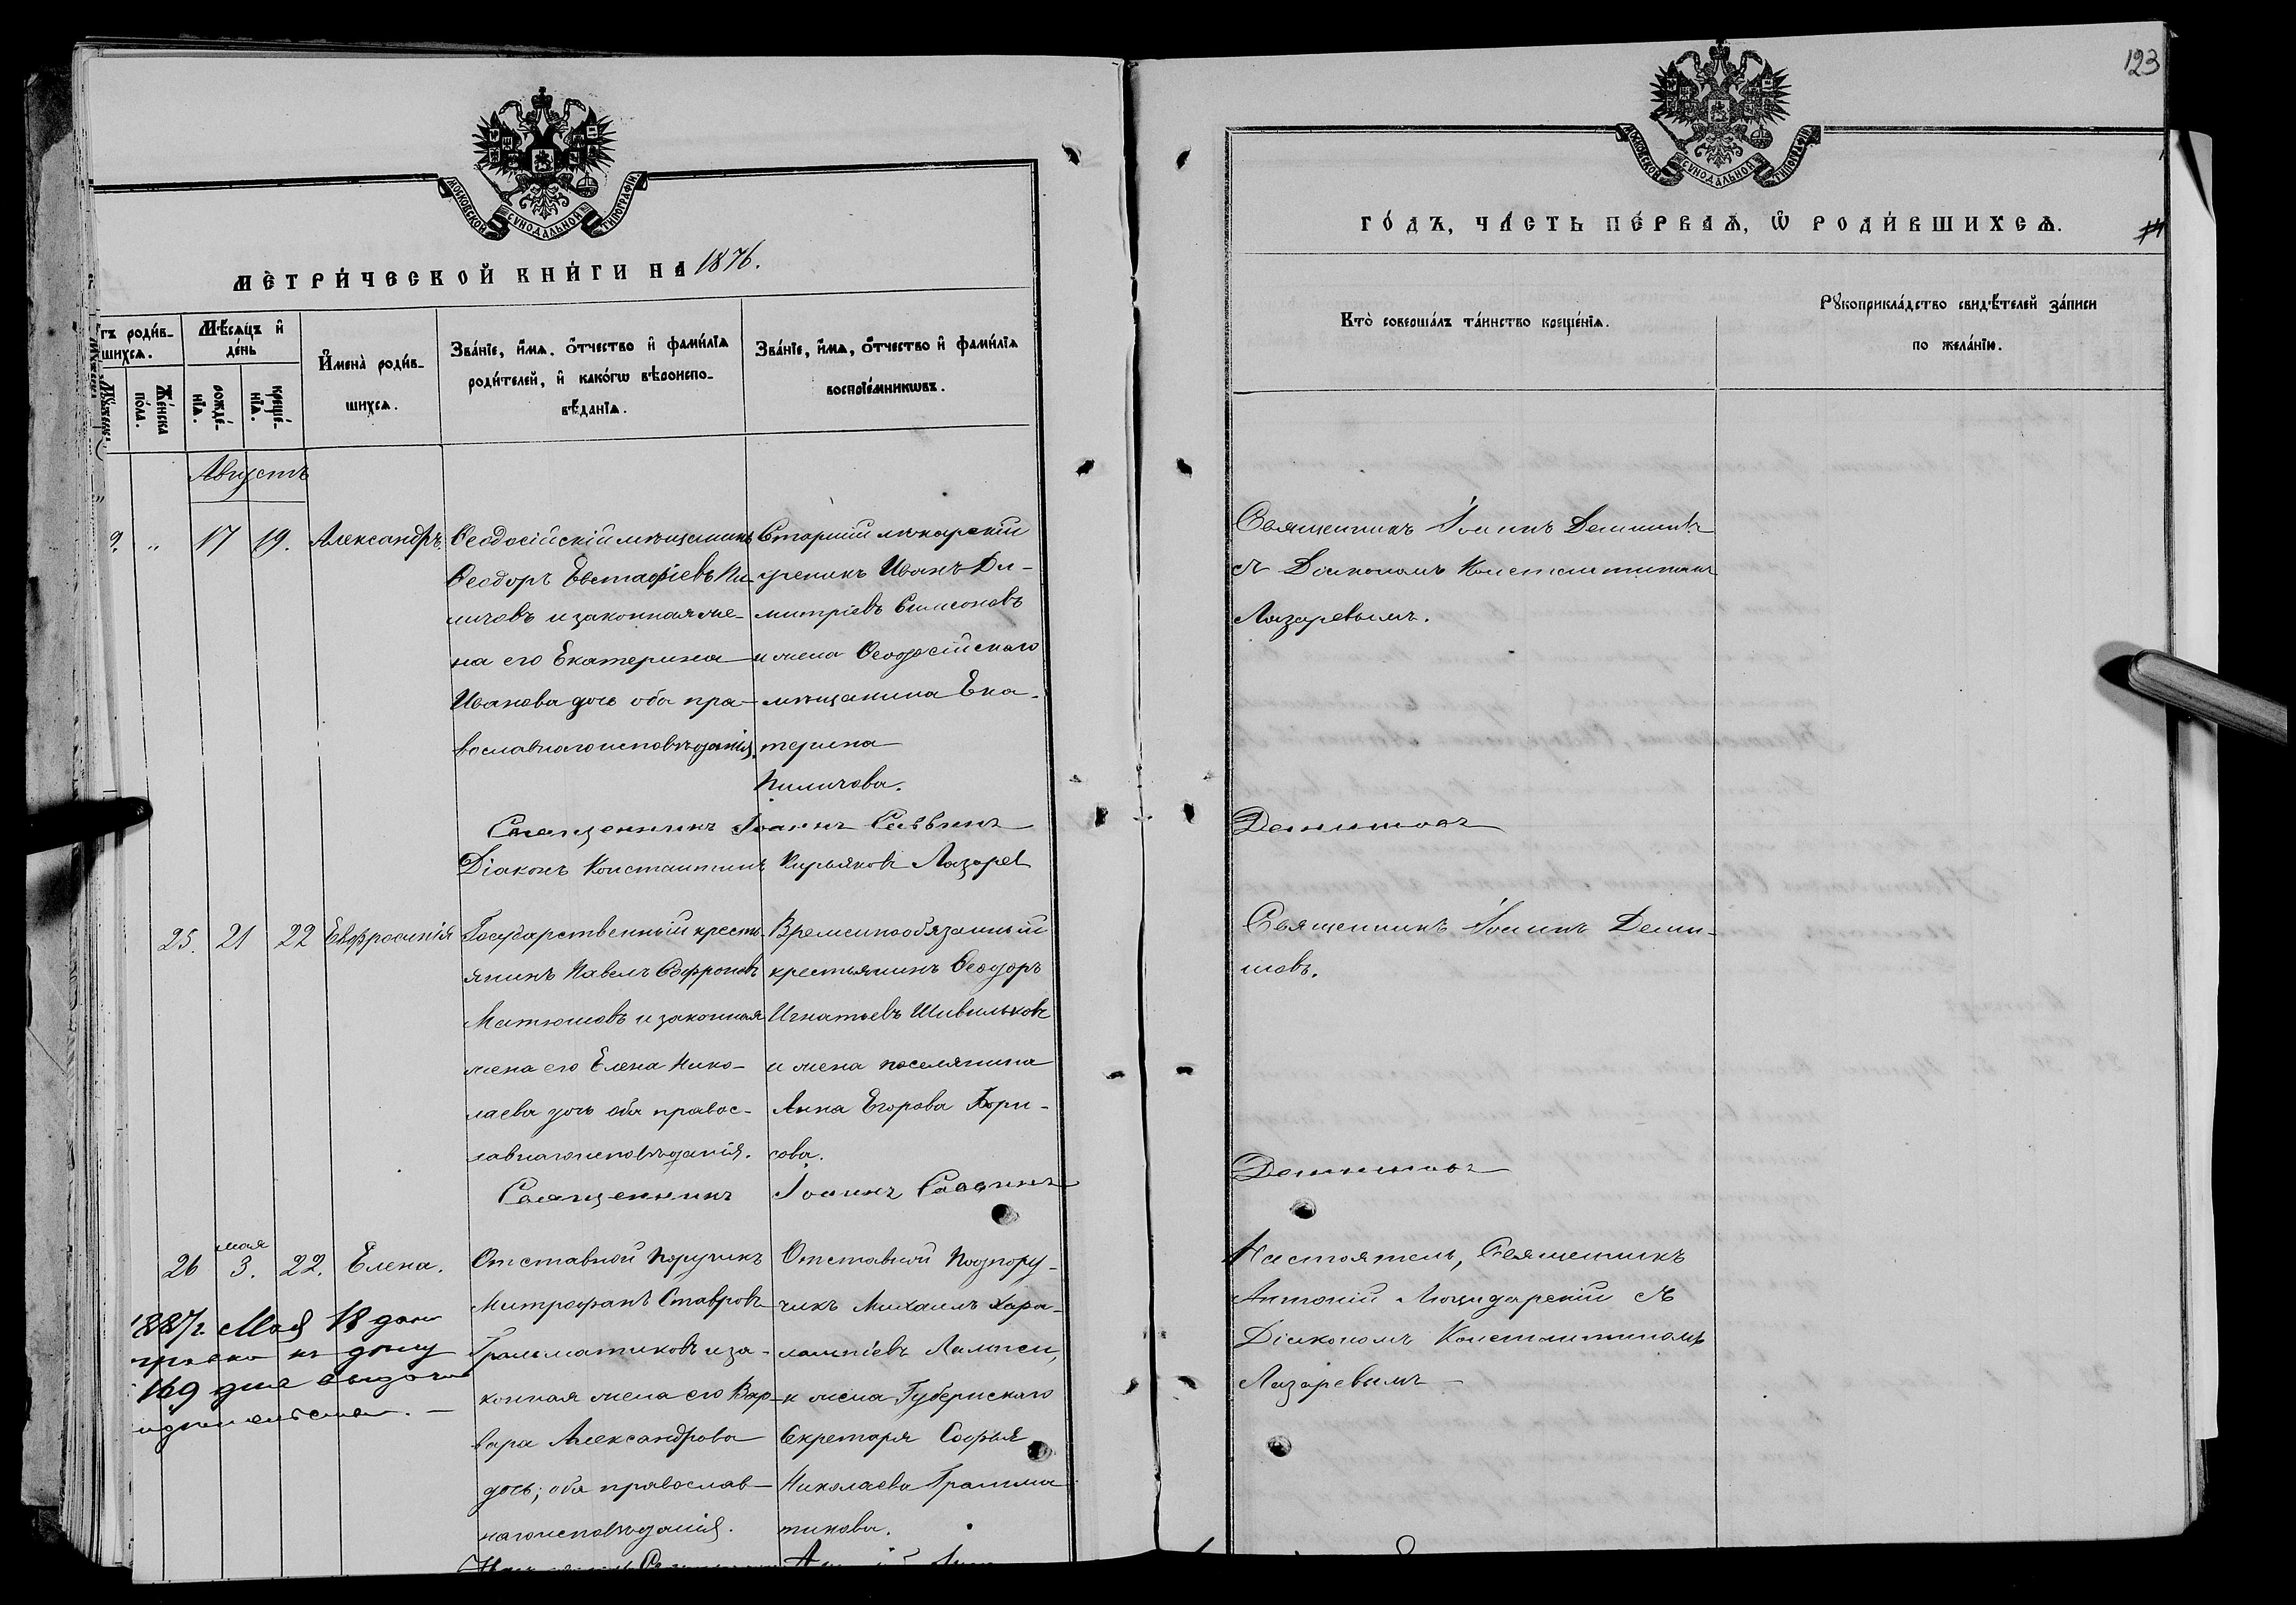 МОСКОВСКОЙ СУНОДАЛЬНОЙ ТИПОГРАФІИ
МЕТРИЧЕСКОЙ КНИГИ НА 1876.
родив-
шихся.
Мѣсяцъ и
день
Женска
пола.
рожде-
нїя.
креще-
нїя.
Имена родив-
шихся.
Званїе, имя, отчество и фамилїя
родителей, и какогω вѣроиспо-
вѣданїя.
Званїе, имя, отчество и фамилїя
воспрїемникωвъ.
Августъ
9. " 17 19. Александръ.
Ѳеодосійскій мѣщанинъ
Ѳеодоръ Евстафіевъ Пи-
личовъ и законная же-
на его Екатерина
Иванова дочь оба пра-
вославнаго исповѣданія.
Старшій лекарскій
ученикъ Иванъ Ди-
митріевъ Симоновъ
и жена Ѳеодосійскаго
мѣщанина Ека-
терина
Пиличова.
Священникъ Іоаннъ Саввинъ
Діаконъ Константинъ Кирьяковъ Лазарев
25. 21 22 Евфросинія
Государственный кресть-
янинъ Павелъ Софроновъ
Матюшовъ и законная
жена его Елена Нико-
лаева дочь оба правос-
лавнаго исповѣданія.
Временнообязанный
крестьянинъ Ѳеодоръ
Игнатьевъ Шивильковъ
и жена поселянина
Анна Егорова Бори-
сова.
Священникъ Іоаннъ Саввинъ
26 мая 3. 22. Елена.
Отставной Поручикъ
Митрофанъ Ставровъ
Грамматиковъ и за-
конная жена его Вар-
вара Александрова
дочь; оба православ-
наго исповѣданія.
Отставной Подпору-
чикъ Михаилъ Хара-
лампіевъ Лампси,
и жена Губернскаго
Секретаря Софья
Николаева Грамма
тикова.
1887г. Мая 18 дня
169 дня выдано
123
МОСКОВСКОЙ СУНОДАЛЬНОЙ ТИПОГРАФІИ
ГОДЪ, ЧАСТЬ ПЕРВАЯ, Ѿ РОДИВШИХСЯ.
Кто совершалъ таинство крещенїя.
Рꙋкоприкладство свидѣтелей записи
по желанїю.
Священникъ Іоаннъ Демишевъ
съ Діакономъ Константиномъ
Лазаревымъ.
Демишовъ
Священникъ Іоаннъ Деми-
шовъ.
Демишовъ
Настоятель, Священникъ
Антоній Люцидарскій съ
Діакономъ Константиномъ
Лазаревымъ